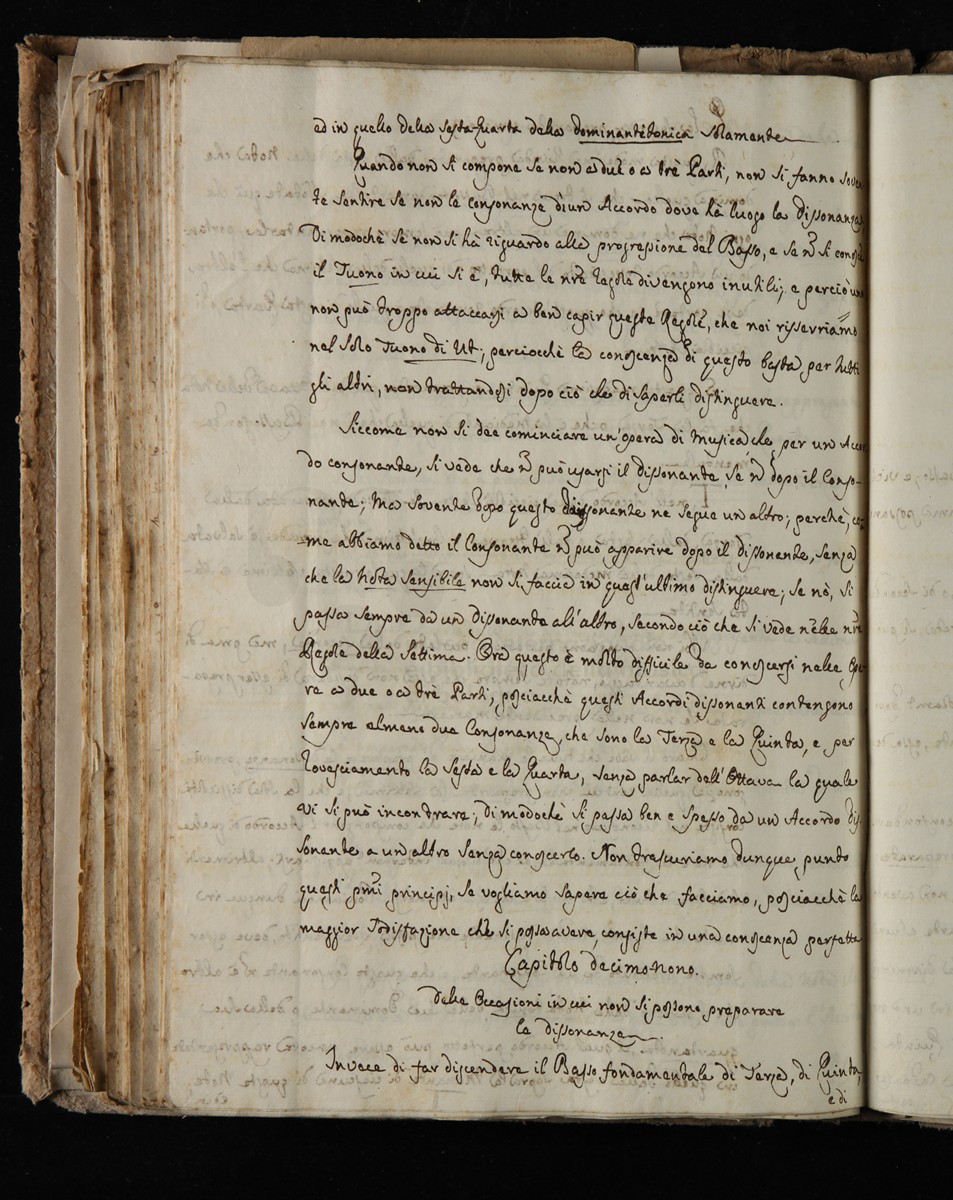 ed in quello della Sesta-Quarta della dominante-tonica solamente
Quando non si compone se non a due o a trè Parti, non si fanno Soven
te sentire se non le consonanze d'un Accordo dove hà luogo la dissonanza,
Di modochè se non si hà riguardo alla progressione del Basso, e se ñ si conosce
il Tuono in cui si è, tutte le nrẽ regole divengono inutili; e perciò uno
non può troppo attaccarsi a ben capir queste Regole, che noi risserriamo
nel solo Tuono di Ut; perciocchè la conoscenza di questo basta per tutti
gli altri, non trattandosi dopo ciò che di saperli distinguere.
Siccome non si dee cominciare un'opera di Musica, che per un Accor
do consonante, si vede che ñ può usarsi il dissonante se ñ dopo il Conso-
nante; Ma sovente dopo questo dissonante ne segue un altro; perchè, co
me abbiamo detto il Consonante ñ può apparire dopo il dissonante, senza
che la Nota sensibile non si faccia in quest'ultimo distinguere; se nò, si
passa sempre da un dissonante all'altro, secondo ciò che si vede nelle nrẽ
Regole della Settima. Ora questo è molto difficile da conoscersi nelle Ope
re a due o a trè Parti, posciacchè questi Accordi dissonanti contengono
sempre almeno due Consonanze, che sono la Terza e la Quinta, e per
rovesciamento la Sesta e la Quarta, senza parlar dell'Ottava la quale
vi si può incontrare; di modochè si passa ben e spesso da un Accordo dis
sonante a un altro senza conoscerlo. Non trascuriamo dunque punto
questi pmĩ principj, se vogliamo sapere ciò che facciamo, posciacchè la
maggior sodisfazione che si possa avere, consiste in una conoscenza perfetta
Capitolo decimonono.
Delle Occasioni in cui non si possono preparare
le dissonanze.
Invece di far discendere il Basso fondamentale di Terza, di Quinta,
e di